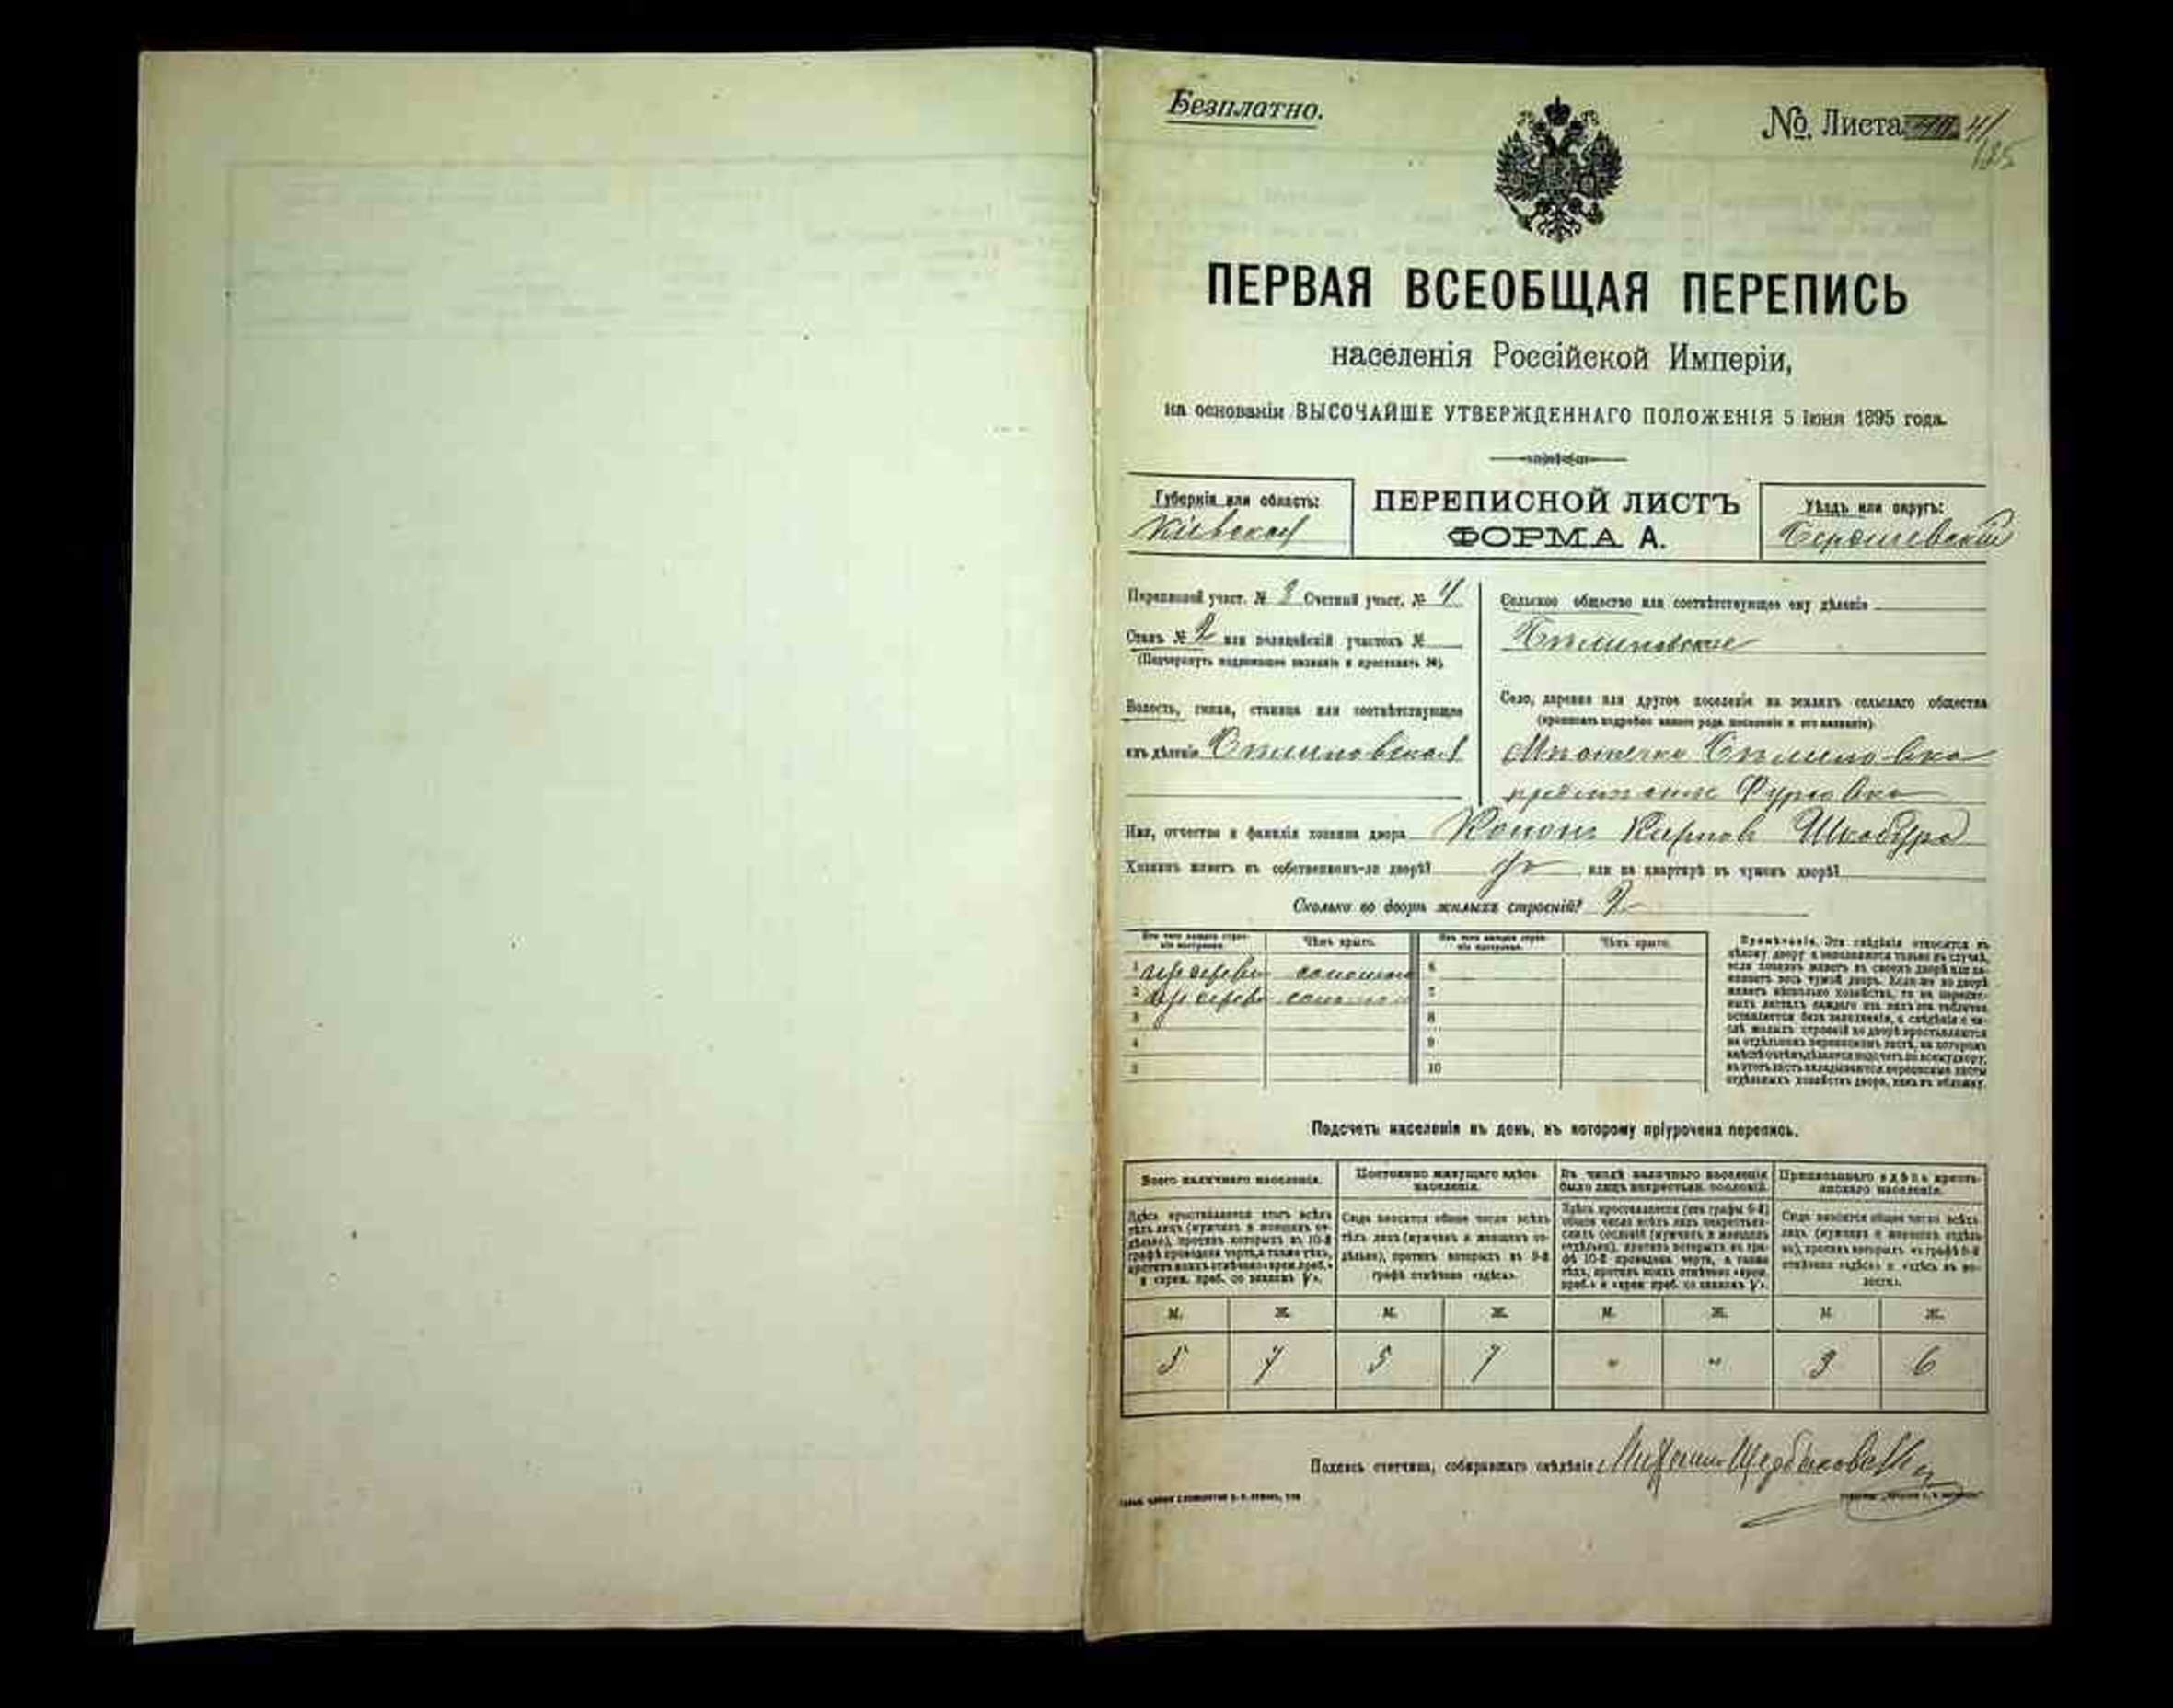 Безплатно.
№ Листа 41
125
ПЕРВАЯ ВСЕОБЩАЯ ПЕРЕПИСЬ
населенія Россійской Имперіи,
на основаніи ВЫСОЧАЙШЕ УТВЕРЖДЕННАГО ПОЛОЖЕНІЯ 5 Іюня 1895 года.
Губернія или область:
Кіевская
ПЕРЕПИСНОЙ ЛИСТЪ
ФОРМА А.
Уѣздъ или округъ:
Бердичевскій
Переписной участ. № 3 Счетный участ. № 4
Станъ № 2 или полицейскій участокъ №
(Подчеркнуть подлежащее названіе и проставить №).
Волость, гмина, станица или соотвѣтствующее
ихъ дѣленіе Бѣлиловская
Сельское общество или соотвѣтствующее ему дѣленіе
Бѣлиловское
Село, деревня или другое поселеніе на земляхъ сельскаго общества
(прописать подробно какого рода поселеніе и его названіе).
Мѣстечко Бѣлиловка
Имя, отчество и фамилія хозяина двора Кононъ Карповъ Шкабура
Хозяинъ живетъ въ собственномъ-ли дворѣ? или на квартирѣ въ чужомъ дворѣ?
Сколько во дворѣ жилыхъ строеній? 2
Изъ чего каждое строе-
ніе построено.
Чѣмъ крыто.
Изъ чего каждое строе-
ніе построено.
Чѣмъ крыто.
1 изъ дерева соломою 6
2 изъ дерева соломою 7
3 8
4 9
5 10
Примѣчаніе. Эти свѣдѣнія относятся къ
цѣлому двору и заполняются только въ случаѣ,
если хозяинъ живетъ въ своемъ дворѣ или за-
нимаетъ весь чужой дворъ. Если-же во дворѣ
живетъ нѣсколько хозяйствъ, то на перепис-
ныхъ листахъ каждаго изъ нихъ эта табличка
оставляется безъ заполненія, а свѣдѣнія о чи-
слѣ жилыхъ строеній во дворѣ проставляются
на отдѣльномъ переписномъ листѣ, на которомъ
вмѣстѣ съ тѣмъ дѣлается подсчетъ по всему двору;
въ этотъ листъ вкладываются переписные листы
отдѣльныхъ хозяйствъ двора, какъ въ обложку.
Подсчетъ населенія въ день, къ которому пріурочена перепись.
Всего наличнаго населенія.
Постоянно живущаго здѣсь
населенія.
Въ числѣ наличнаго населенія
было лицъ некрестьян. сословій.
Приписаннаго здѣсь кресть-
янскаго населенія.
Здѣсь проставляется итогъ всѣхъ
тѣхъ лицъ (мужчинъ и женщинъ от-
дѣльно), противъ которыхъ въ 10-й
графѣ проведена черта, а также тѣхъ,
противъ коихъ отмѣчено «врем. преб.»
и «врем. преб. со знакомъ V».
Сюда вносится общее число всѣхъ
тѣхъ лицъ (мужчинъ и женщинъ от-
дѣльно), противъ которыхъ въ 9-й
графѣ отмѣчено «здѣсь».
Здѣсь проставляется (изъ графы 6-й)
общее число всѣхъ лицъ некрестьян-
скихъ сословій (мужчинъ и женщинъ
отдѣльно), противъ которыхъ въ гра-
фѣ 10-й проведена черта, а также
тѣхъ, противъ коихъ отмѣчено «врем.
преб.» и «врем. преб. со знакомъ V».
Сюда вносится общее число всѣхъ
лицъ (мужчинъ и женщинъ отдѣль-
но), противъ которыхъ въ графѣ 8-й
отмѣчено «здѣсь» и «здѣсь въ во-
лости».
М. Ж. М. Ж. М. Ж. М. Ж.
5 7 5 7 " " 3 6
Подпись счетчика, собиравшаго свѣдѣнія Михаилъ Щербаковскій